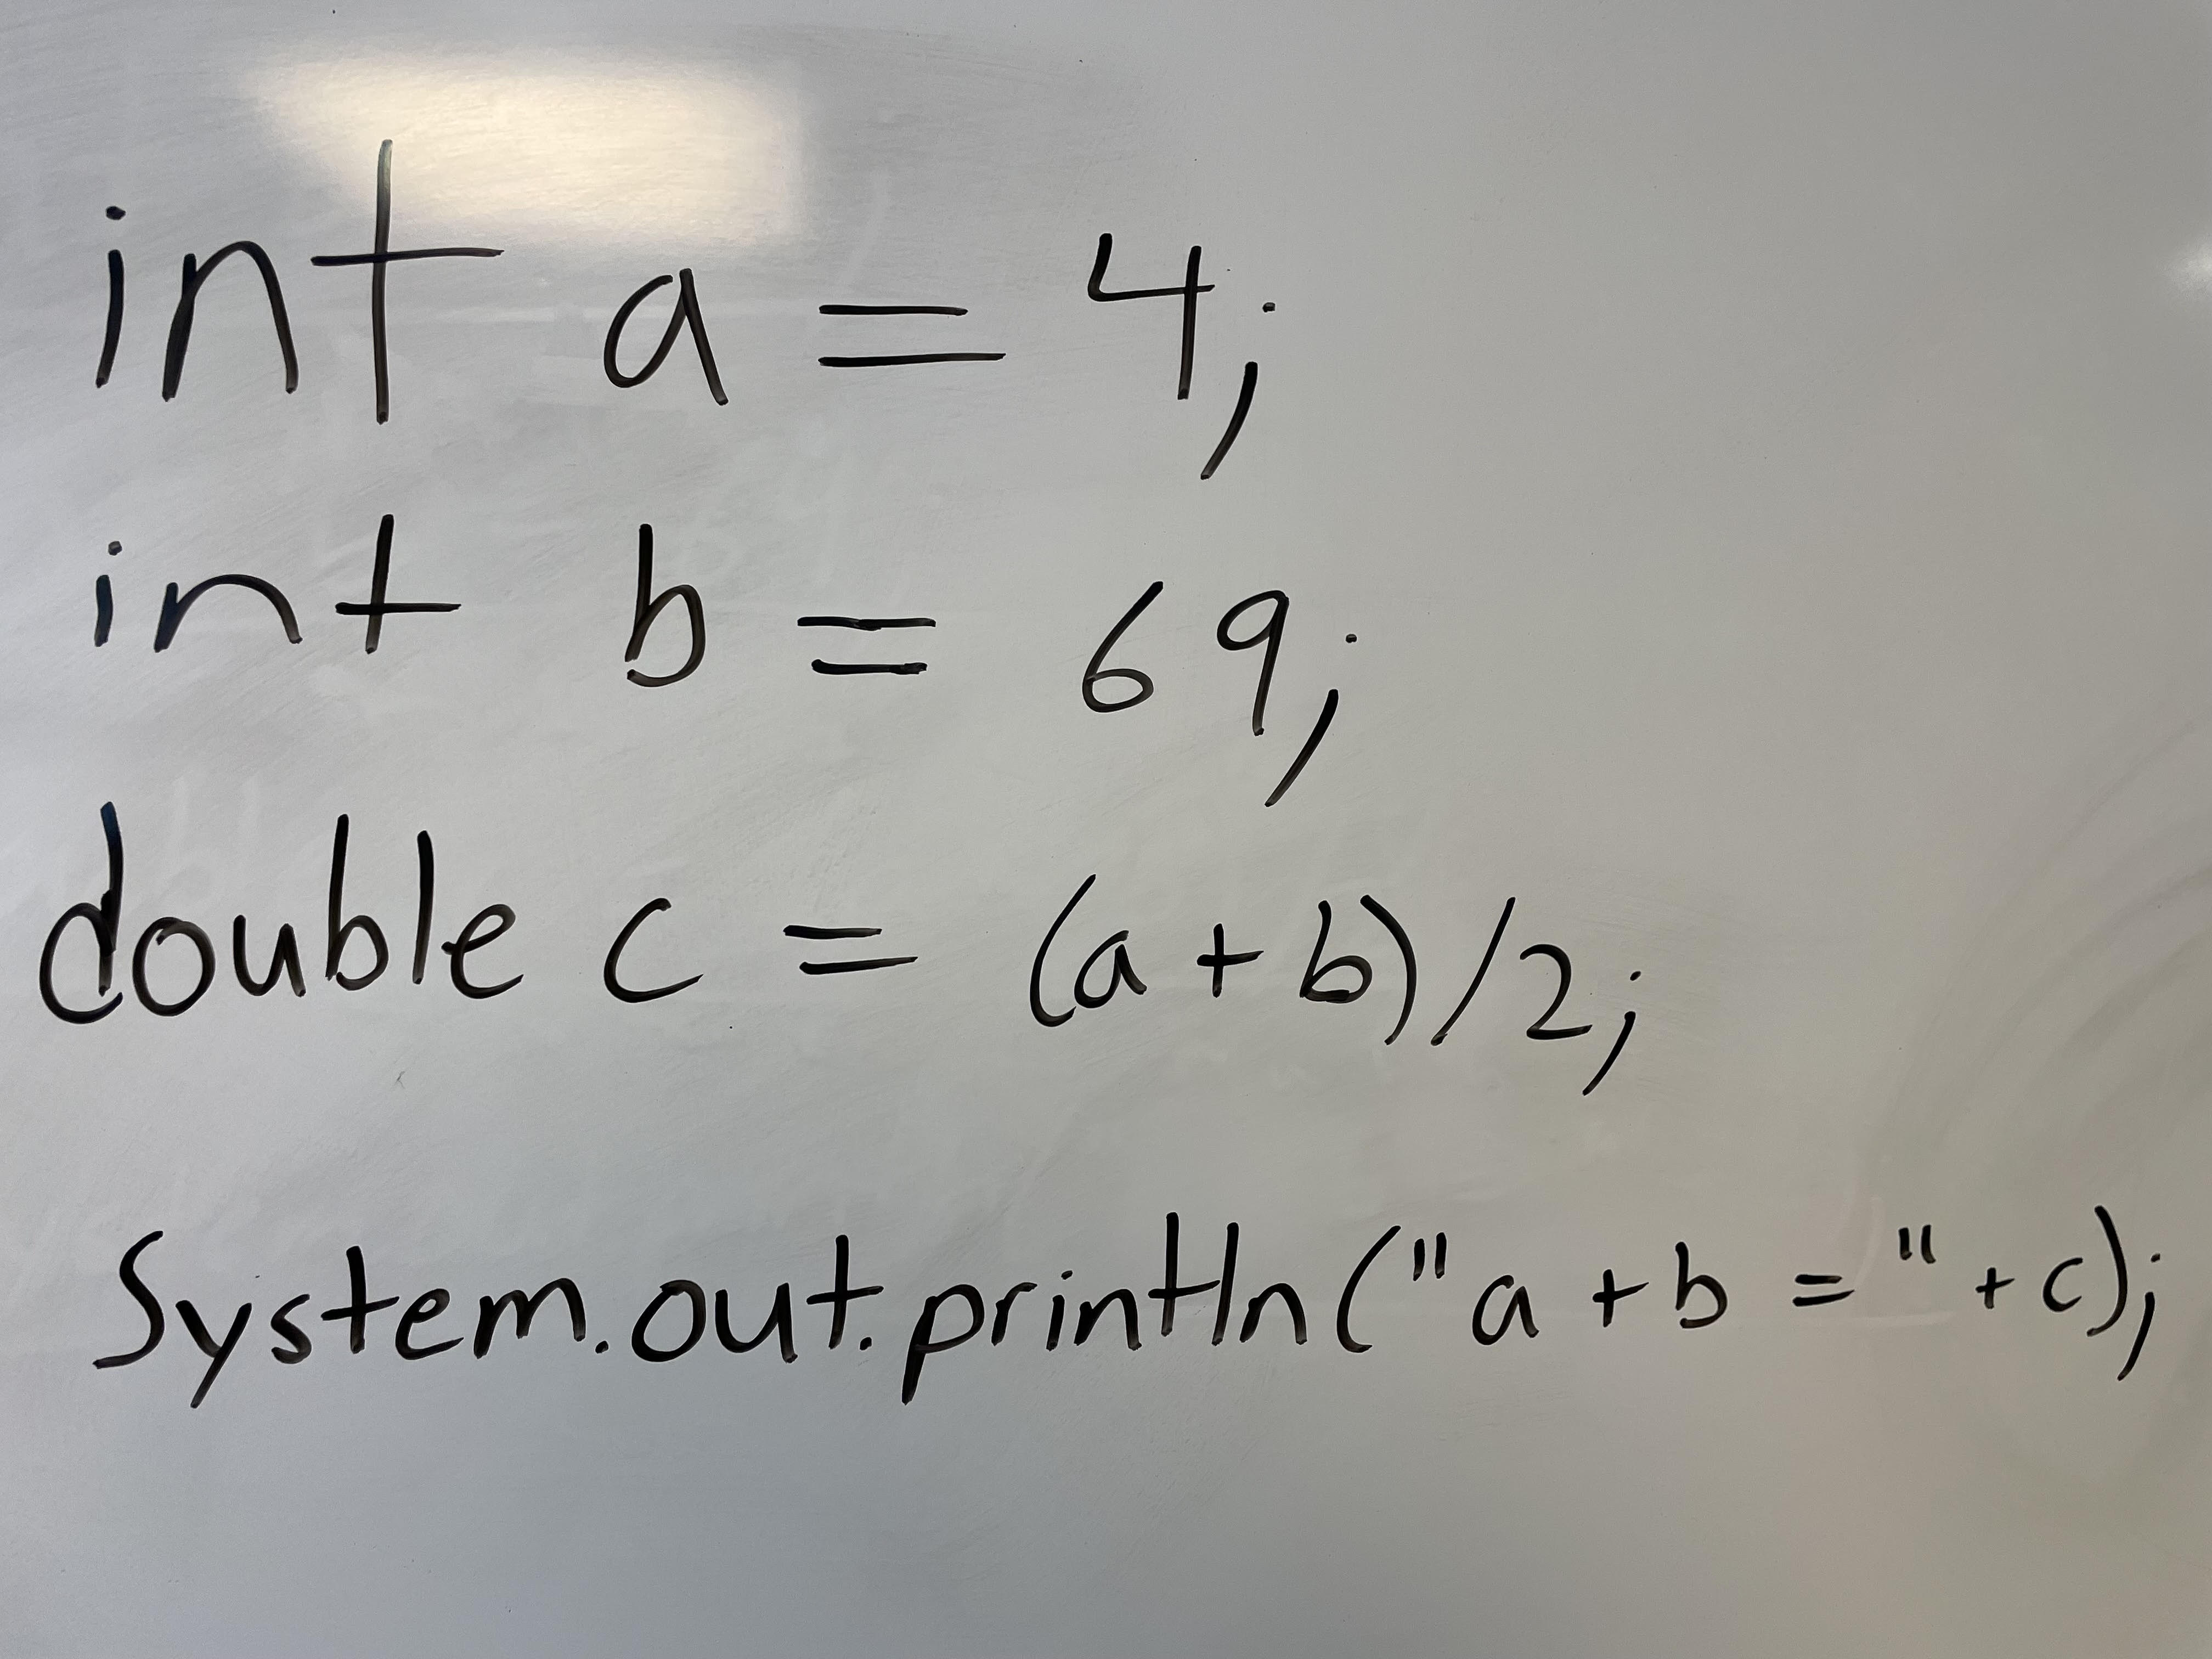 int a = 4;
int b = 69;
double c = (a + b)/2;
System.out.println("a + b = " + c);